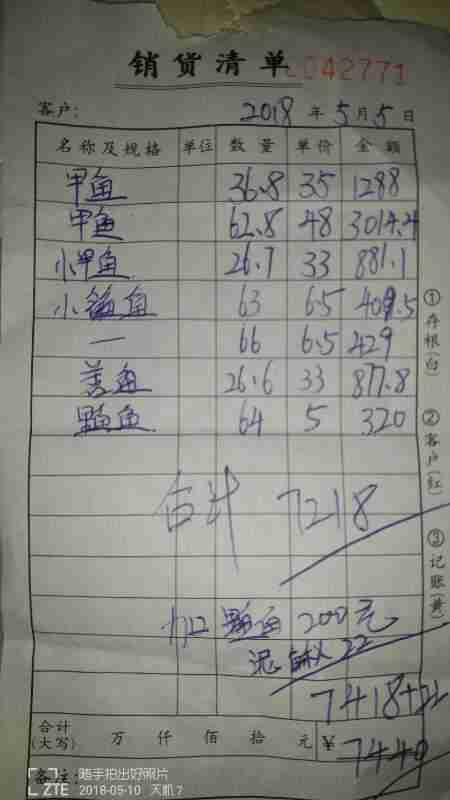 销货清单 0042771
客户: 2018 年 5 月 5 日
名称及规格 单位 数量 单价 金额
甲鱼 36.8 35 1288
甲鱼 62.8 48 3014.4
小甲鱼 26.7 33 881.1
小鱼 63 6.5 409.5
一 66 6.5 429
善鱼 26.6 33 877.8
鱼 64 5 320
合计 7218
加 鱼 200元
泥鳅 22
7418+22
合计
(大写) 万 仟 佰 拾 元 ¥ 7440
备注:
①存根(白)
②客户(红)
③记账(黄)
随手拍出好照片
ZTE 2018-05-10 天机7